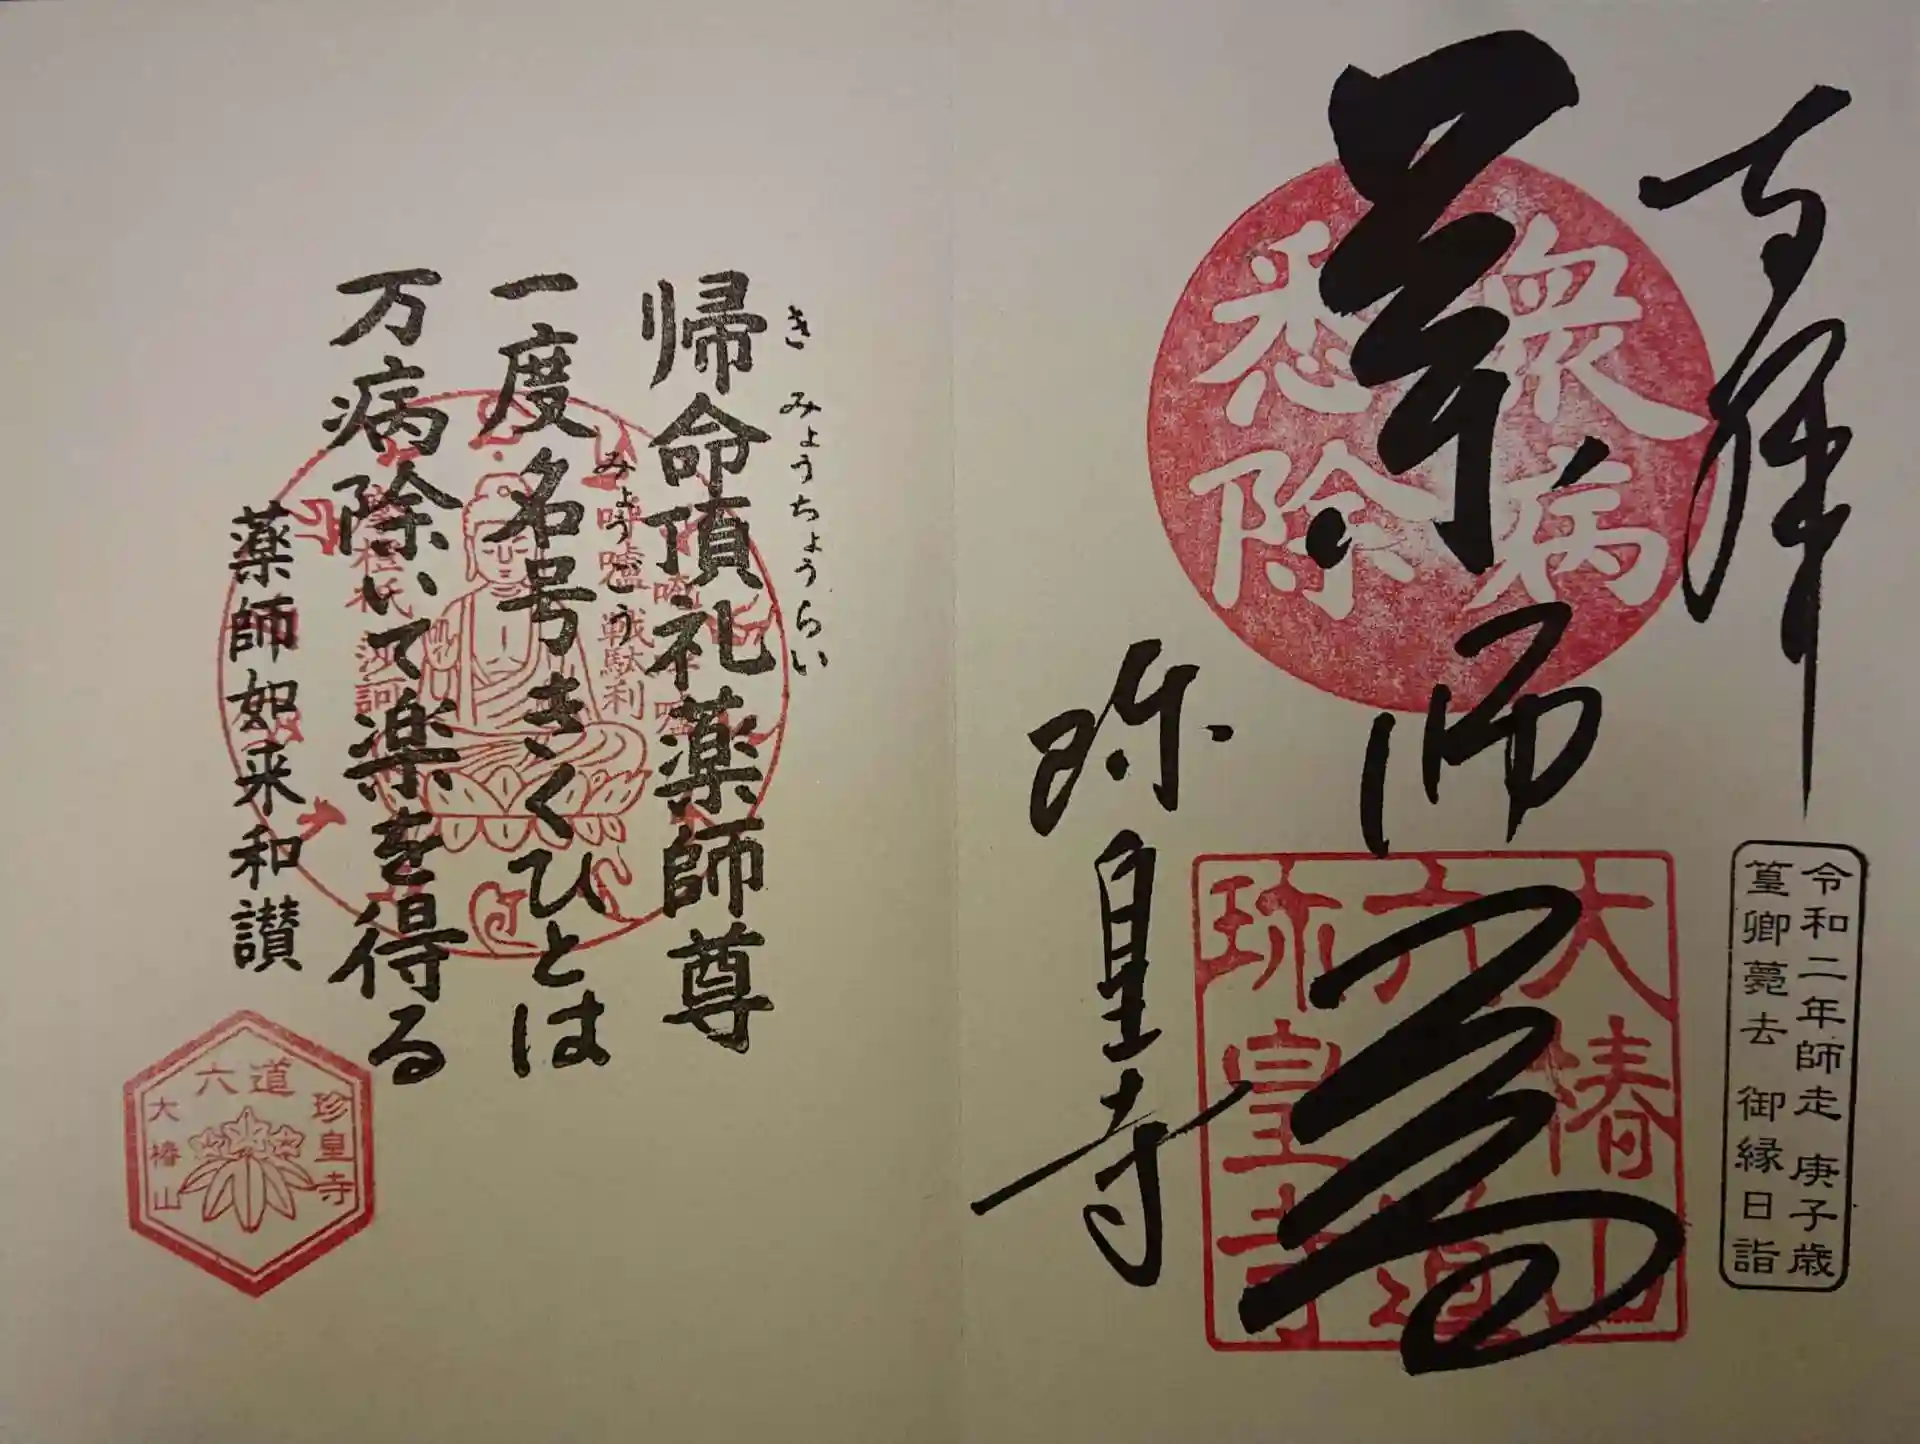 奉拝
令和二年師走 庚子歳
篁卿薨去 御縁日詣
衆病
悉除
薬師尊
大椿山
六道
珎皇寺
珎皇寺
きみょうちょうらい
帰命頂礼薬師尊
みょうごう
一度名号きくひとは
万病除いて楽を得る
薬師如来和讃
六道
珍皇寺
大椿山